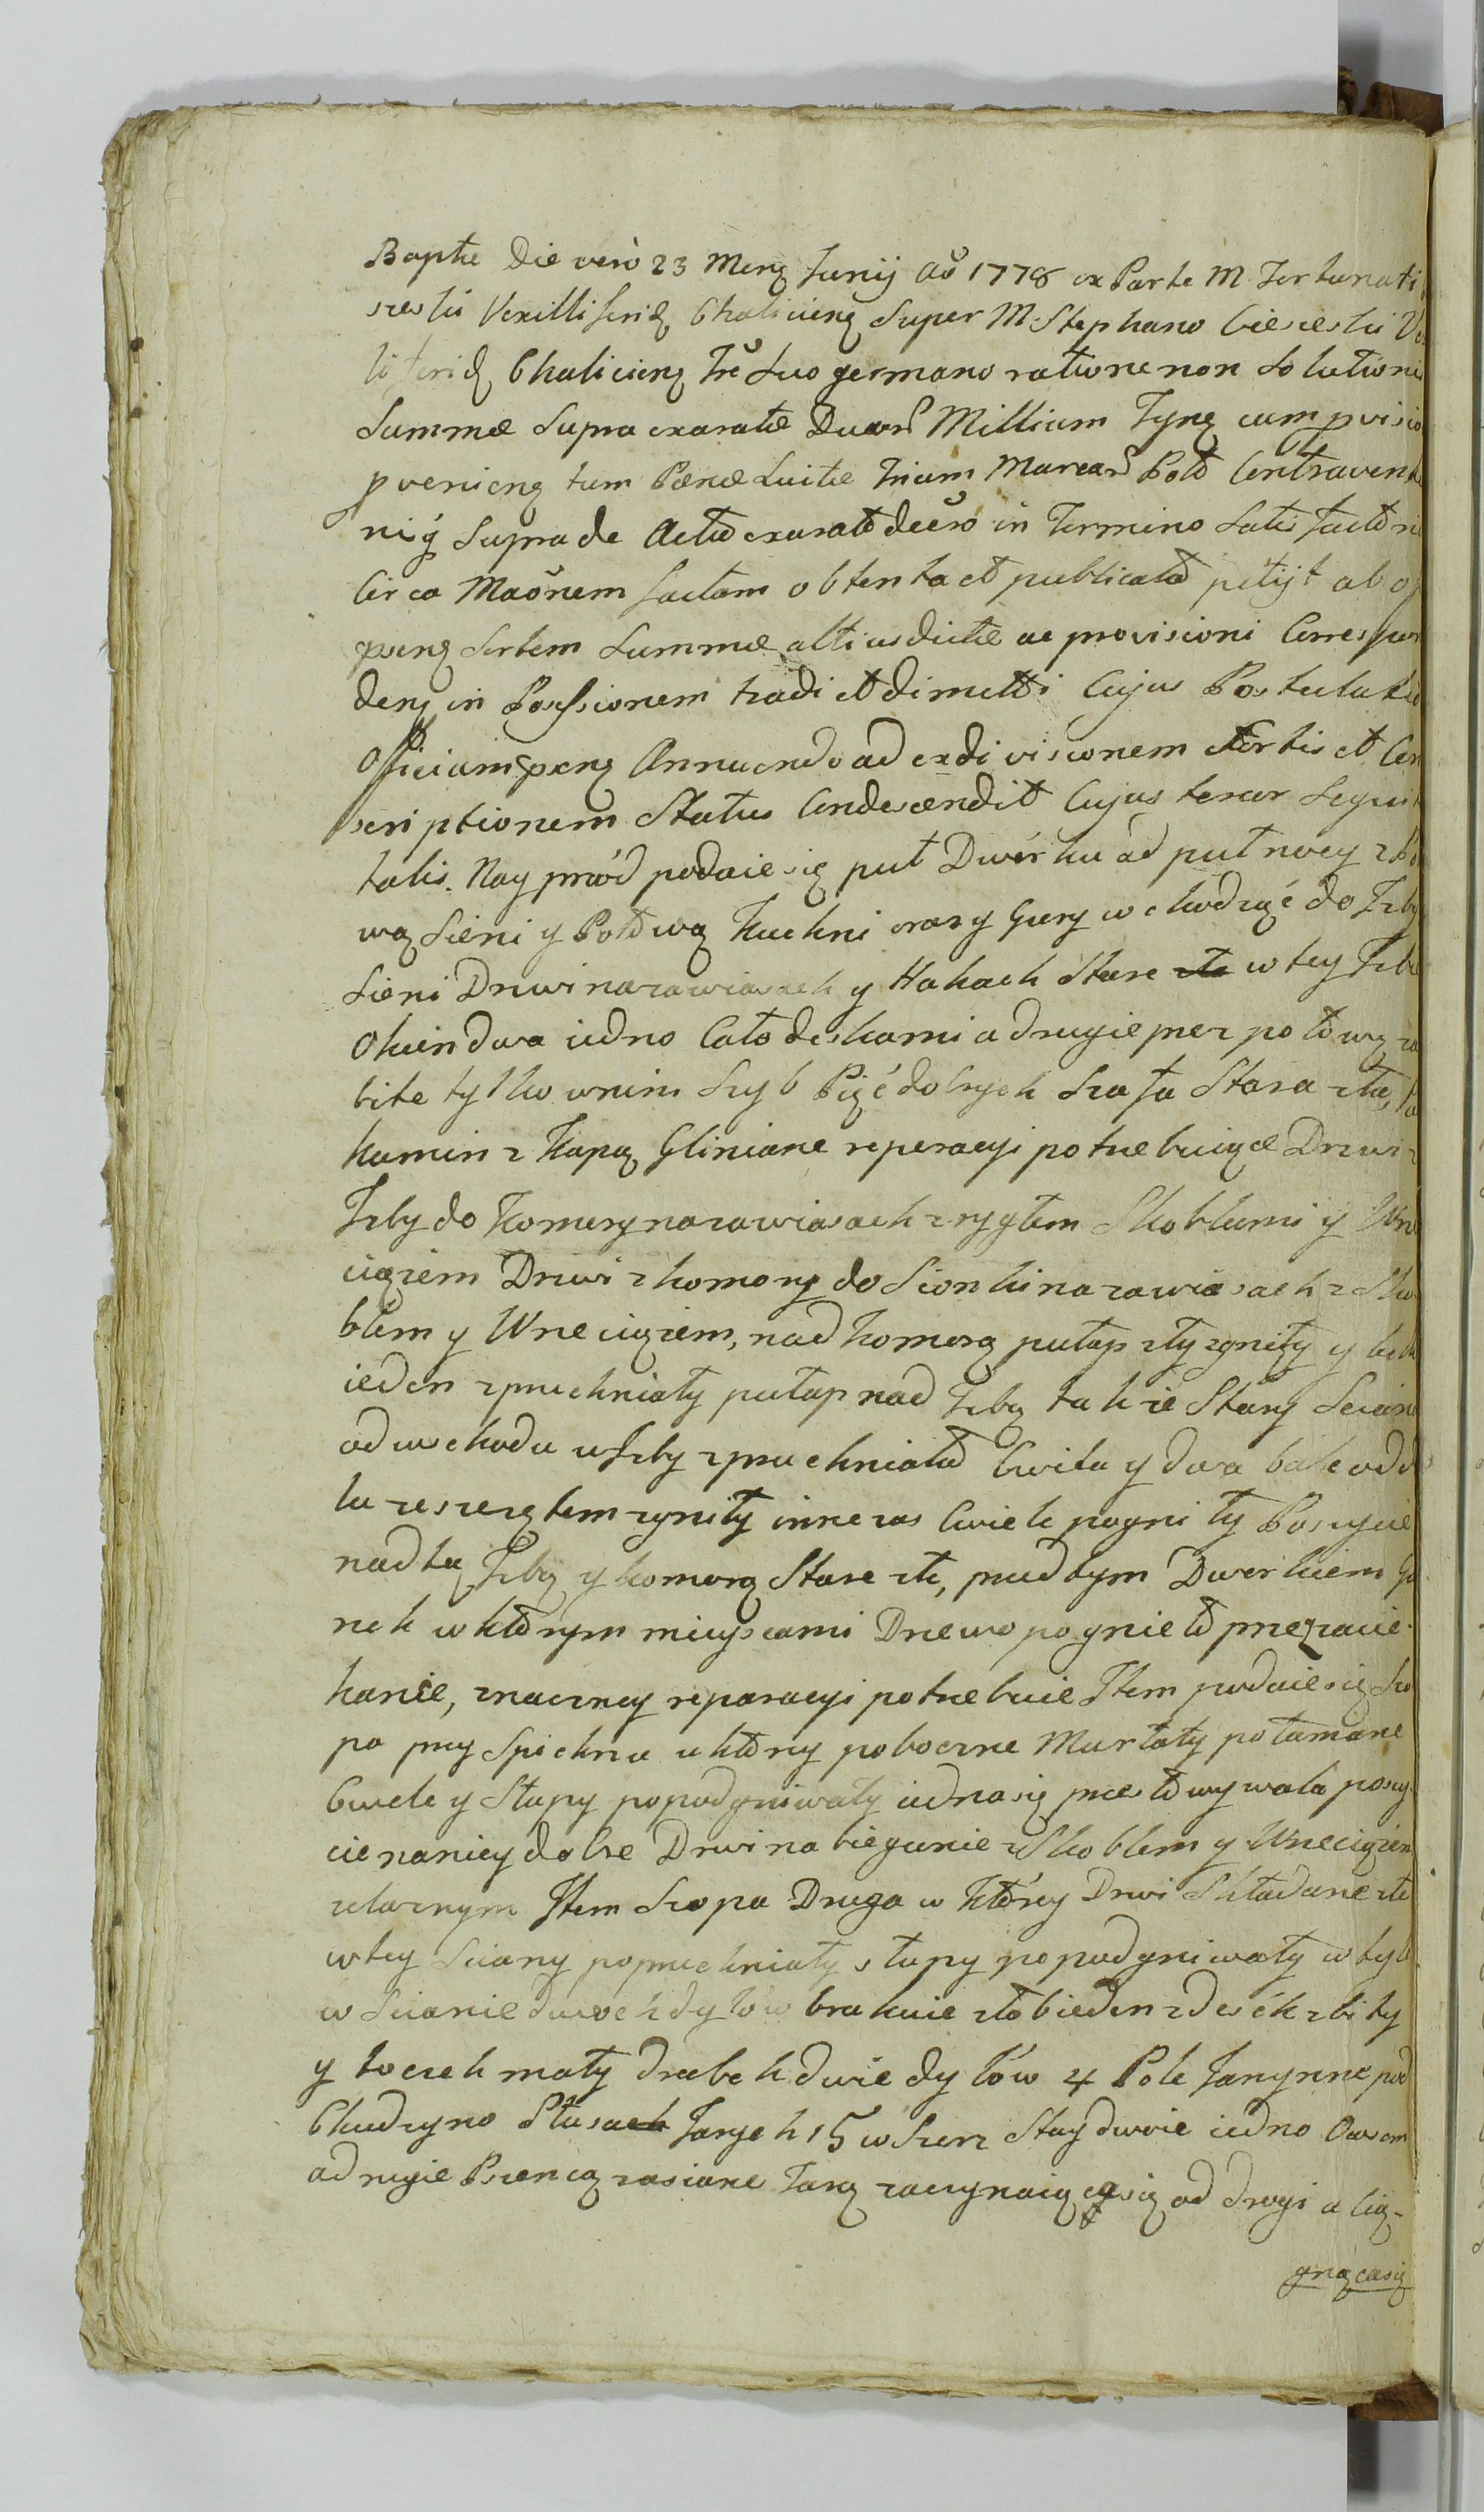 Baptae Die vero 23 Mens Junij Ao 1778 ex Parte M. Fortunati
szeski Vexilliferid Chalicien Super M. Stephano Ciesieski
liferid Chalicien Fre Suo germano ratione non Solutionis
Summae Supra exaratae Duar Millium Tynf cum pvisio
pvenien tum Paenae Luitae Trium Marcar Polo Contravent
niq Supra de Acto exarato decro in Termino Satis factio
Circa Maonem factam obtenta et publicata petijt ab
pscns Sortem Summae altius dictae ac provisioni Correspon
dens in Possessionem tradi et dimitti Cujus Postulatio
Officium pscns Annuendo ad exdivisionem Sortis et Con
scriptionem Status Condescendit Cujus tenor Sequit
talis. Nay przód podaie się puł Dwórku ad puł nowey
wą Sieni y Połową Kuchni oraz y Gury wchodząć do Izby
Sieni Drzwi na zawiasach y Hakach Stare złe w tey Izbe
Okien dwa iedno Cało deskami a drugie przez połowę za
bite tylko wnim Szyb Pięć dobrych Szafa Stara zła,
Kamin z Kapą Gliniane reperacyi potrzebuiące Drzwi z
Izby do Komory na zawiasach z rygłem Skoblami y Wrze
ciązem Drzwi z komory do Sionki na zawiasach z Sko
blem y Wrzeciązem, nad komorą pułap zły zgniły y belk
ieden zpruchniały pułap nad Izbą także Stary Sciana
od wschodu w Izby zpruchniała Cwila y dwa bale od do
łu ze szczętem zgniły inne zas Cwiele pogniły Poszycie
nad tą Izbą y komorą Stare złe, przed tym Dworkiem Ga
nek w którym mieyscami Drzewo pogniełо przez zacie-
kanie, znaczney reparacyi potrzebuie Item podaie się Szo
pa przy Spichrzu u który poboczne Murłaty połamane
Cwele y Słupy popodgniwały iedna się przestowywała poszy
cie na niey dobre Drzwi na biegunie z Skoblem y Wrzeciązem
żelaznym Item Szopa Druga w którey Drzwi Składane złe
w tey Sciany popruchniały słupy popodgniwały w tyle
w Scianie dwoch dylów brakuie żłob ieden z desék zbity
y toczek mały drabek dwie dylów 4 Pole Jarzynne pod
Chudzyno Stusach Jarych 15 w Szerz Stay dwoie iedno Owsem
a drugie Pszenicą zasiane Jarą zaczynaiącę się od drogi a cią-
gnącasię